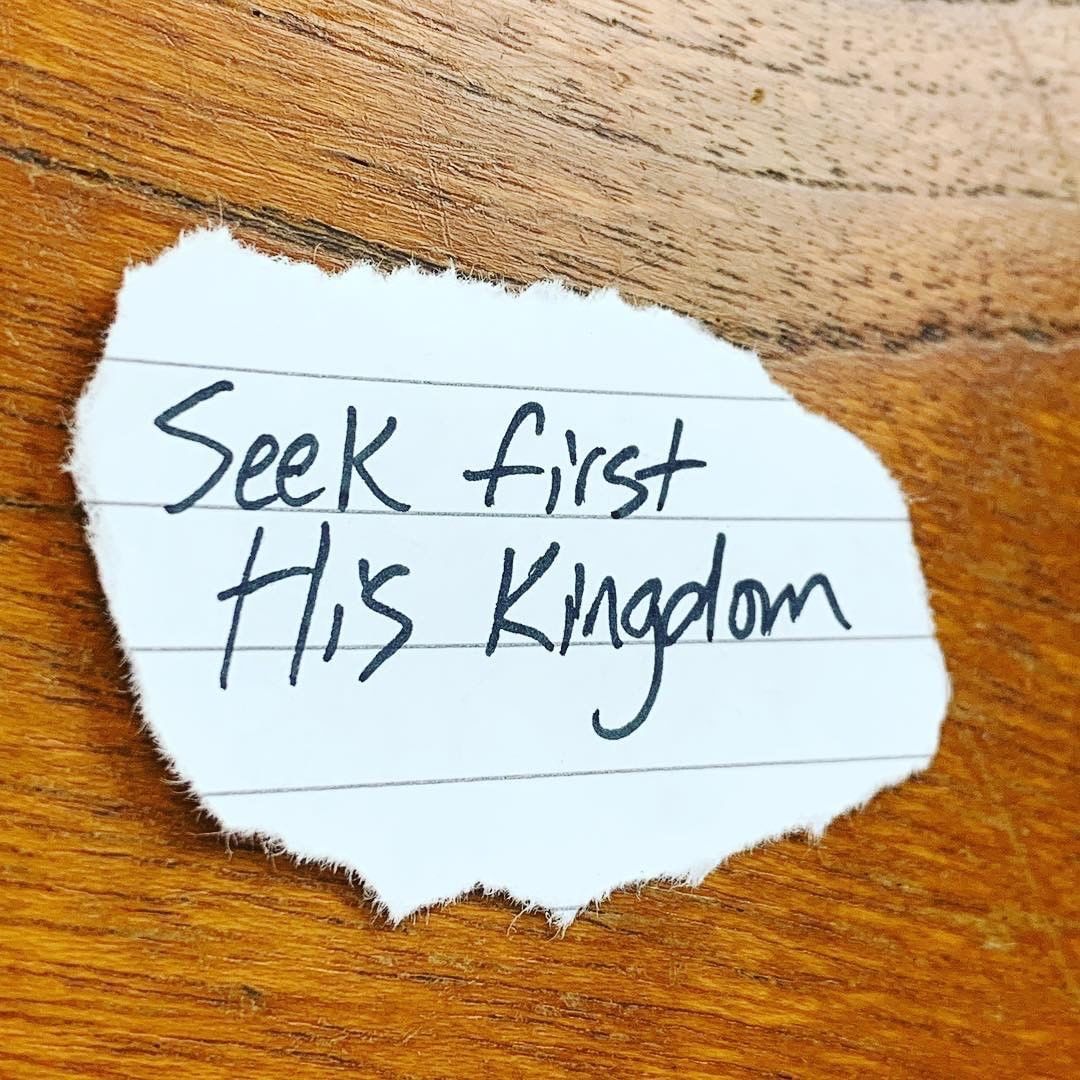 Seek first
His Kingdom